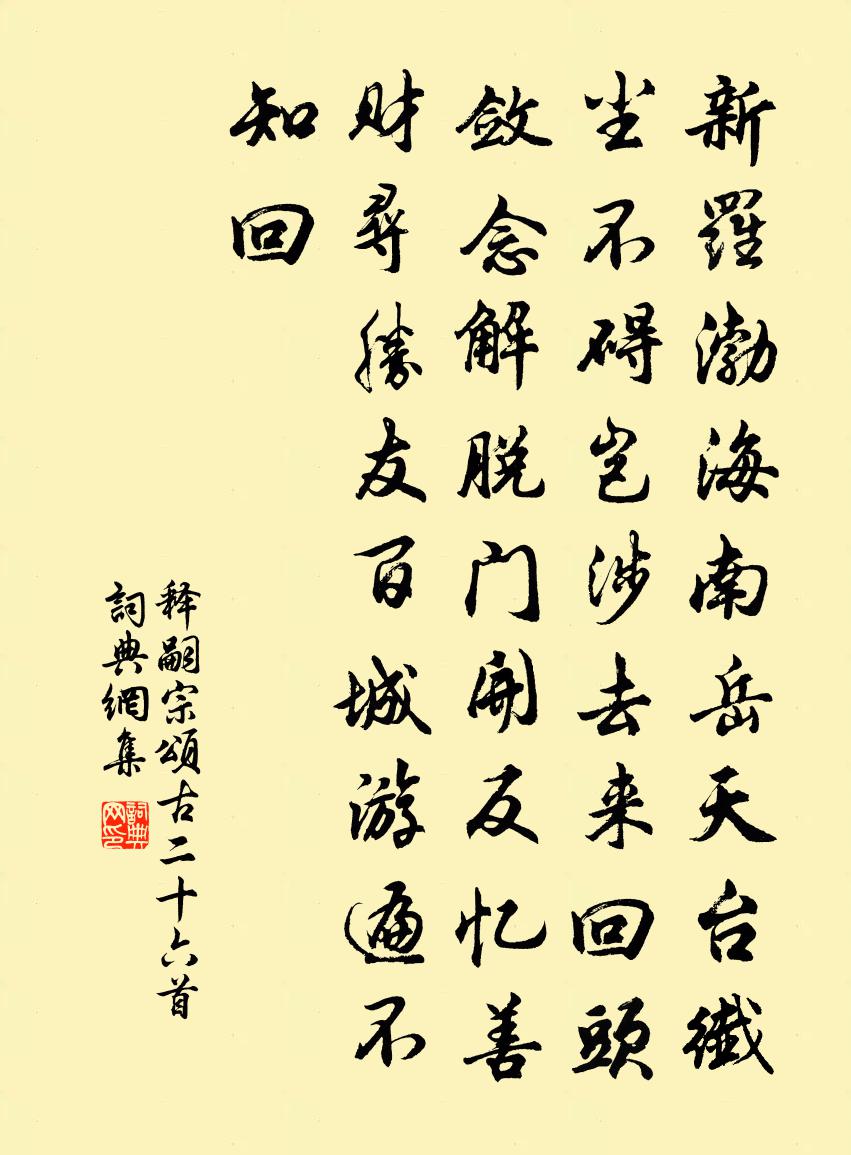 新羅渤海南岳天台纖
尘不碍岂涉去来回頭
敛念解脱门開反忆善
财尋勝友百城游遍不
知回
释嗣宗頌古二十六首
詞典網集
詞典网印